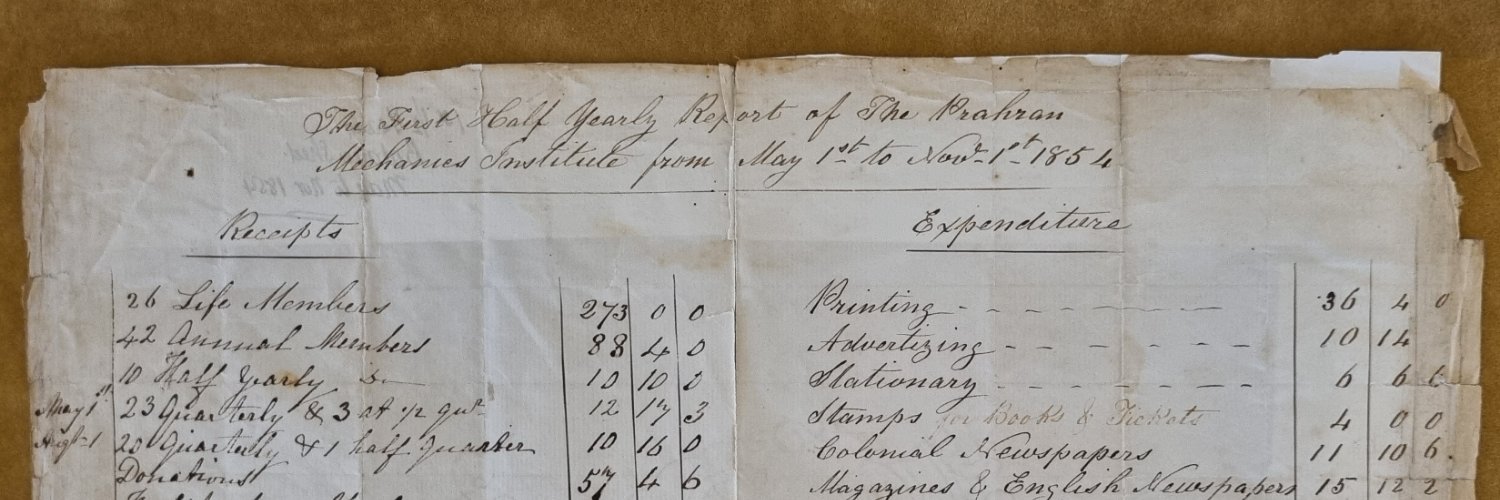 The First Half Yearly Report of The Prahran
Mechanics Institute from May 1st to Novr 1st 1854
Receipts
26 Life Members 273 0 0
42 Annual Members 88 4 0
10 Half Yearly Do 10 10 0
May 1st 23 Quarterly & 3 at 1/2 qutr 12 17 3
Augt 1 20 Quarterly & 1 half Quarter 10 16 0
Donations 57 4 6
Expenditure
Printing 36 4 0
Advertizing 10 14
Stationary 6 6 6
Stamps for Books & Tickets 4 0 0
Colonial Newspapers 11 10 6.
Magazines & English Newspapers 15 12 2